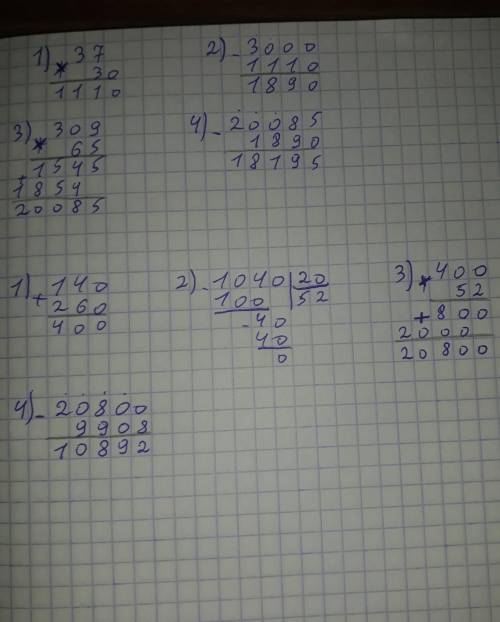 1) * 37
30
1110
2) - 3000
1110
1890
3) * 309
65
+ 1545
1854
20085
4) - 20085
1890
18195
1) + 140
260
400
2) - 1040 | 20
100 | 52
- 40
40
0
3) * 400
52
+ 800
2000
20800
4) - 20800
9908
10892